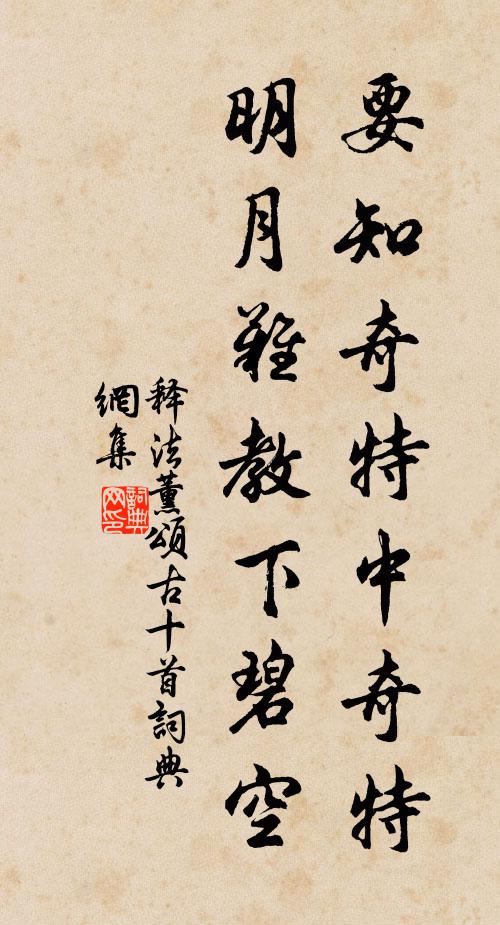 要知奇特中奇特
明月難教下碧空
释法薰頌古十首詞典
網集
詞典
网印